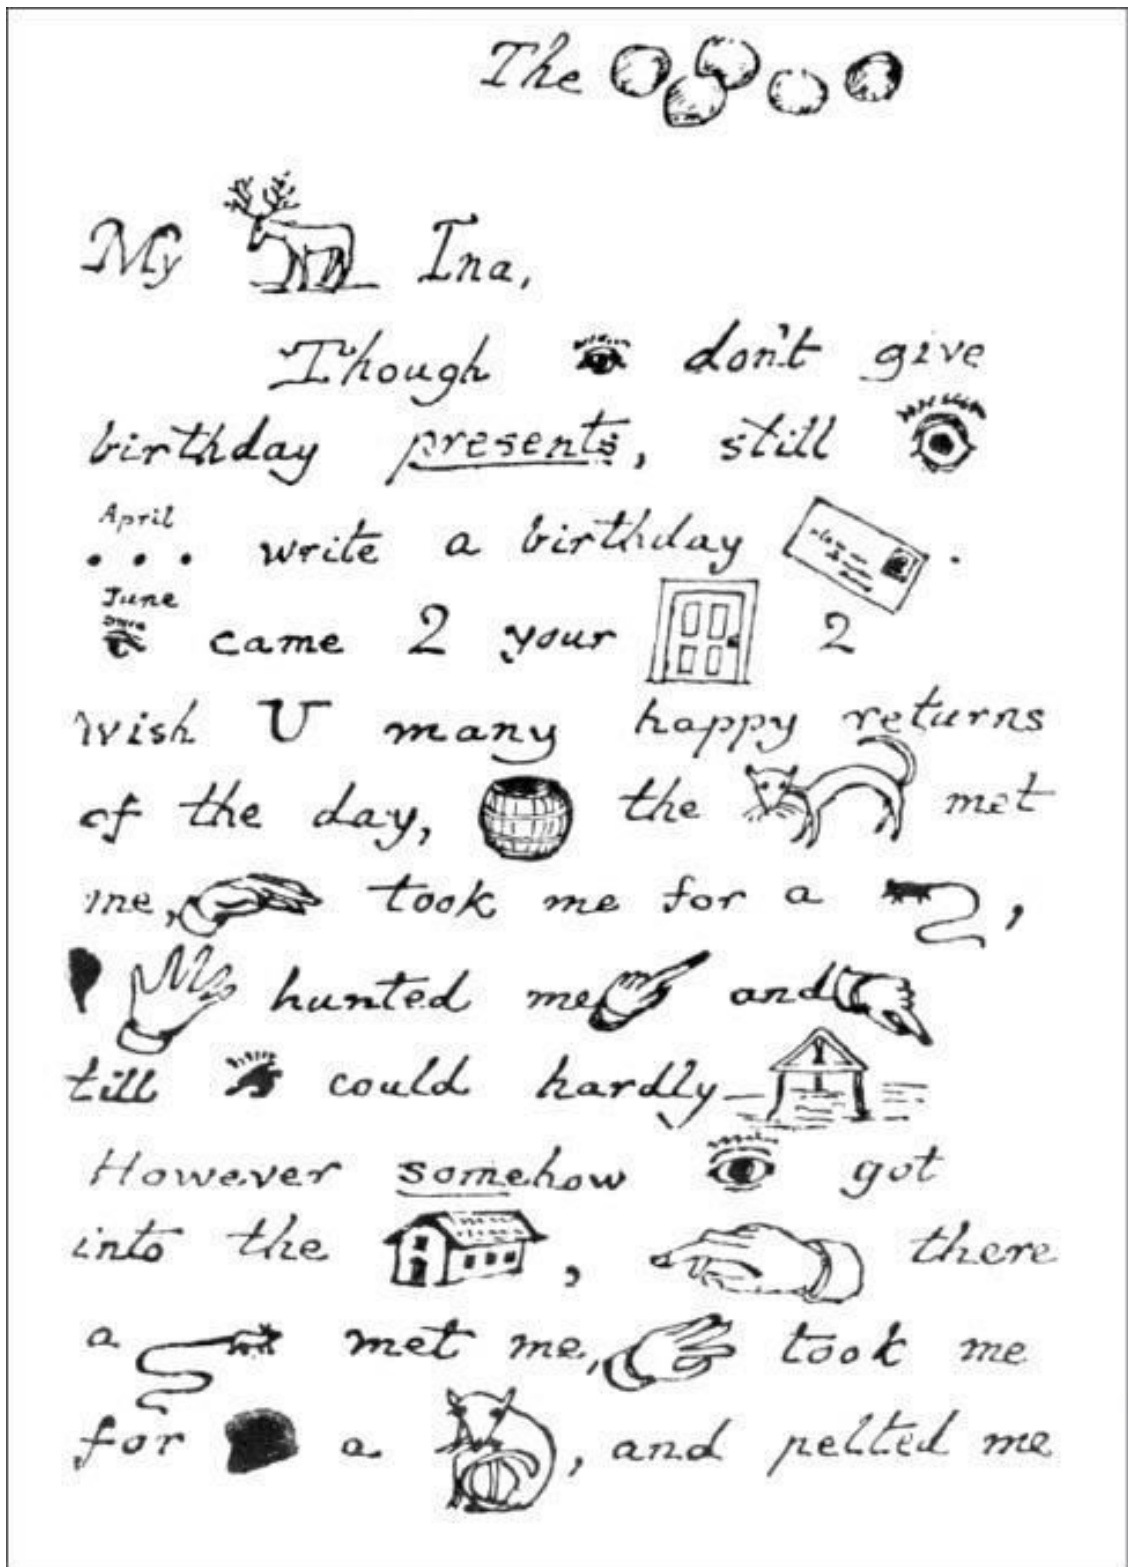 The
My Ina,
Though don't give
birthday presents, still
April
. . . write a birthday .
June
came 2 your 2
wish U many happy returns
of the day, the met
me, took me for a ,
hunted me and
till could hardly —
However somehow got
into the , there
a met me, took me
for a , and pelted me